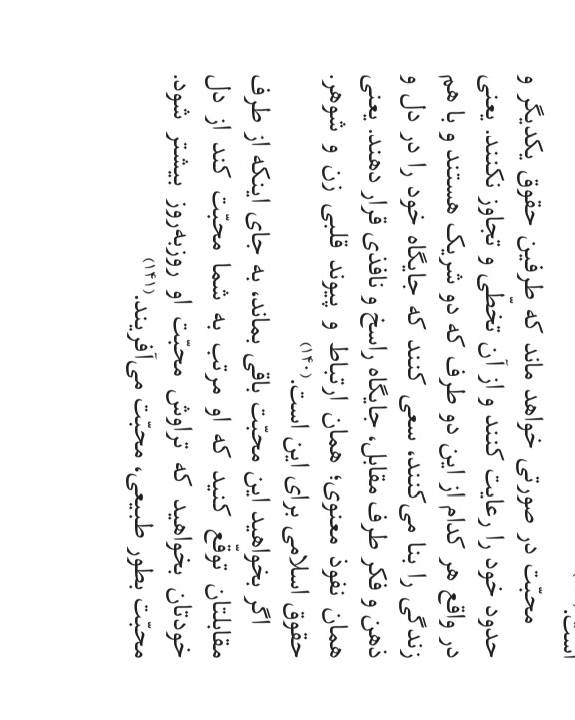 است.
محبّت در صورتی خواهد ماند که طرفین حقوق یکدیگر و
حدود خود را رعایت کنند و از آن تخطّی و تجاوز نکنند. یعنی
در واقع هر کدام از این دو طرف که دو شریک هستند و با هم
زندگی را بنا می‌کنند، سعی کنند که جایگاه خود را در دل و
ذهن و فکر طرف مقابل، جایگاه راسخ و نافذی قرار دهند. یعنی
همان نفوذ معنوی؛ همان ارتباط و پیوند قلبی زن و شوهر.
حقوق اسلامی برای این است.(۱۴۰)
اگر بخواهید این محبّت باقی بماند، به جای اینکه از طرف
مقابلتان توقّع کنید که او مرتب به شما محبّت کند از دل
خودتان بخواهید که تراوش محبّت او روزبه‌روز بیشتر شود.
محبّت بطور طبیعی، محبّت می‌آفریند.(۱۴۱)